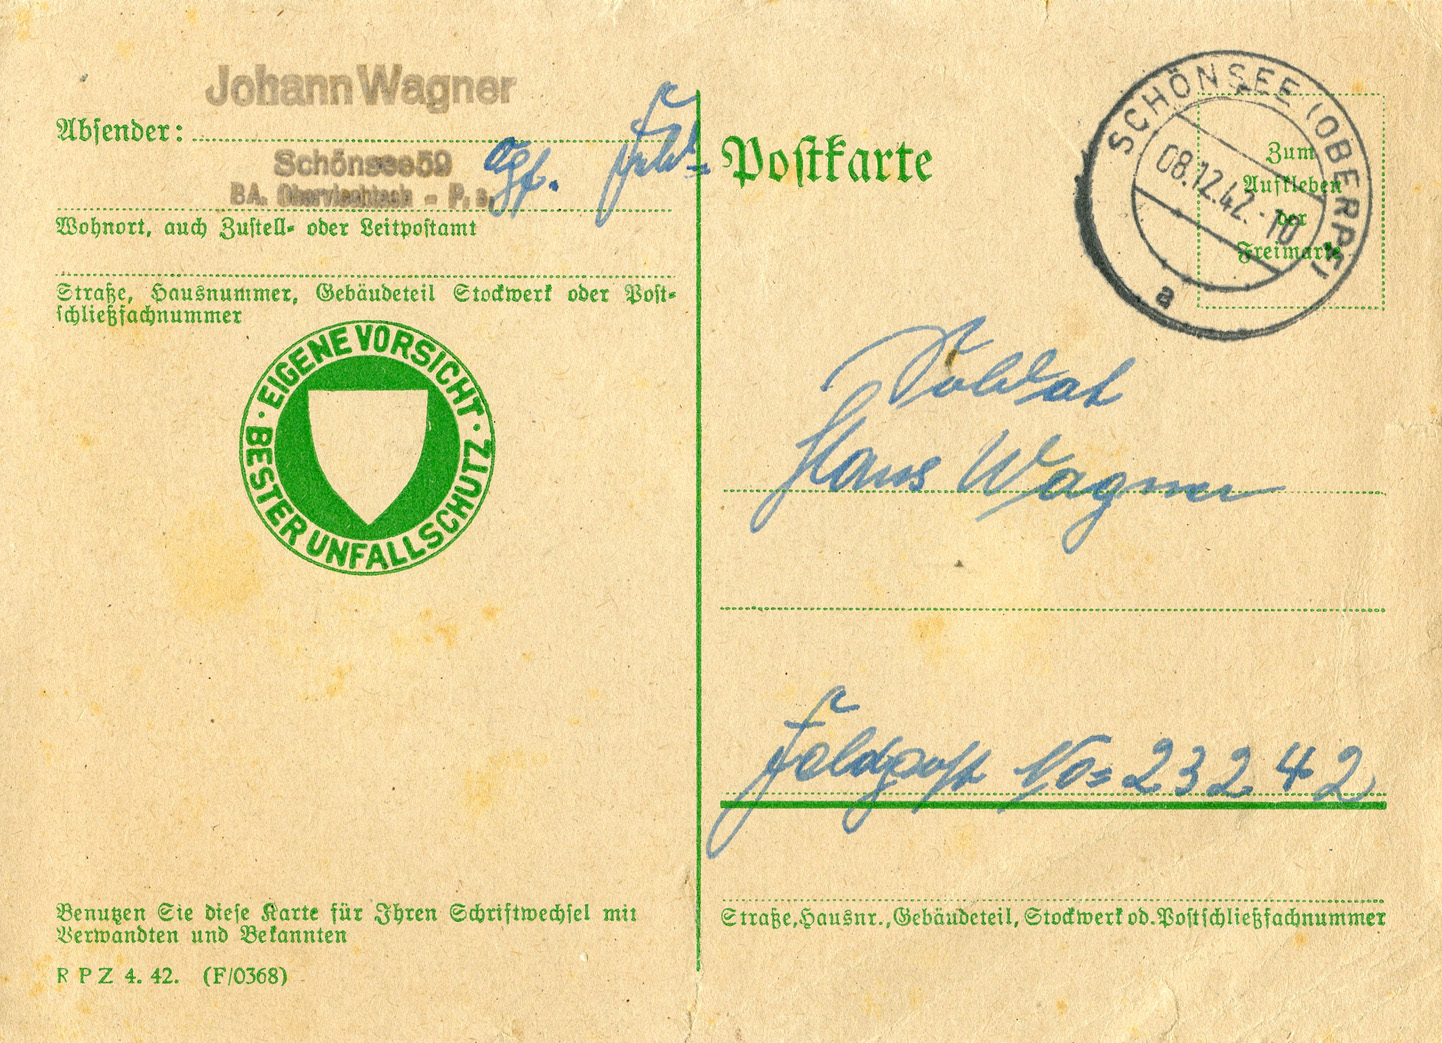 Johann Wagner
Absender:
Schönsee 59
BA. Oberviechtach - P. a.
Wohnort, auch Zustell- oder Leitpostamt
Straße, Hausnummer, Gebäudeteil Stockwerk oder Post-
schließfachnummer
EIGENE VORSICHT · BESTER UNFALLSCHUTZ ·
Benutzen Sie diese Karte für Ihren Schriftwechsel mit
Verwandten und Bekannten
R P Z 4. 42. (F/0368)
Postkarte
SCHÖNSEE (OBERPF)
08.12.42.-10
a
Zum
Aufkleben
der
Freimarke
Soldat
Hans Wagner
Feldpost No= 23242
Straße, Hausnr., Gebäudeteil, Stockwerk od. Postschließfachnummer